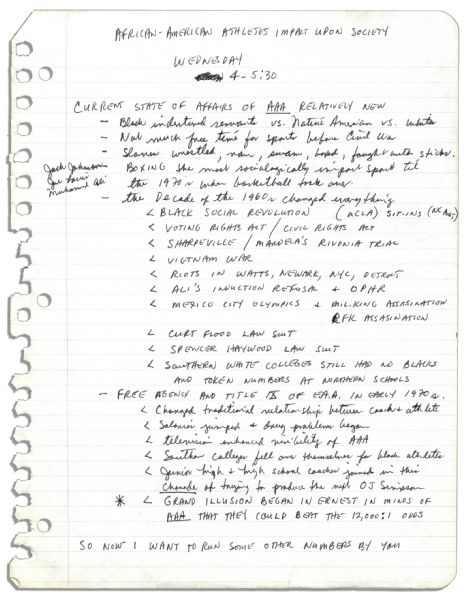 AFRICAN-AMERICAN ATHLETES IMPACT UPON SOCIETY
WEDNESDAY
4-5:30
CURRENT STATE OF AFFAIRS OF AAA RELATIVELY NEW
- Black indentured servants vs. Native American vs. whites
- Not much free time for sports before Civil War
- Slaves wrestled, ran, swam, boxed, fought with sticks.
Jack Johnson
Joe Louis
Muhammad Ali
- BOXING the most sociologically import sport til
the 1970s when basketball took over.
- the Decade of the 1960s changed everything
< BLACK SOCIAL REVOLUTION (UCLA) SIT-INS (NC A&T)
< VOTING RIGHTS ACT / CIVIL RIGHTS ACT
< SHARPEVILLE / MANDELA'S RIVONIA TRIAL
< VIETNAM WAR
< RIOTS IN WATTS, NEWARK, NYC, DETROIT
< ALI'S INDUCTION REFUSAL & OPHR
< MEXICO CITY OLYMPICS & MLKING ASSASINATION
RFK ASSASINATION
< CURT FLOOD LAW SUIT
< SPENCER HAYWOOD LAW SUIT
< SOUTHERN WHITE COLLEGES STILL HAD NO BLACKS
AND TOKEN NUMBERS AT NORTHERN SCHOOLS
- FREE AGENCY AND TITLE IX OF E.A.A. IN EARLY 1970s.
< Changed traditional relationship between coach & athlete
< Salaries jumped & drug problem began
< television enhanced visibility of AAA
< Southern colleges fell over themselves for black athletes
< Junior high & high school coaches joined in this
Charade of trying to produce the next OJ Simpson
* < GRAND ILLUSION BEGAN IN ERNEST IN MINDS OF
AAA THAT THEY COULD BEAT THE 12,000:1 ODDS
SO NOW I WANT TO RUN SOME OTHER NUMBERS BY YOU